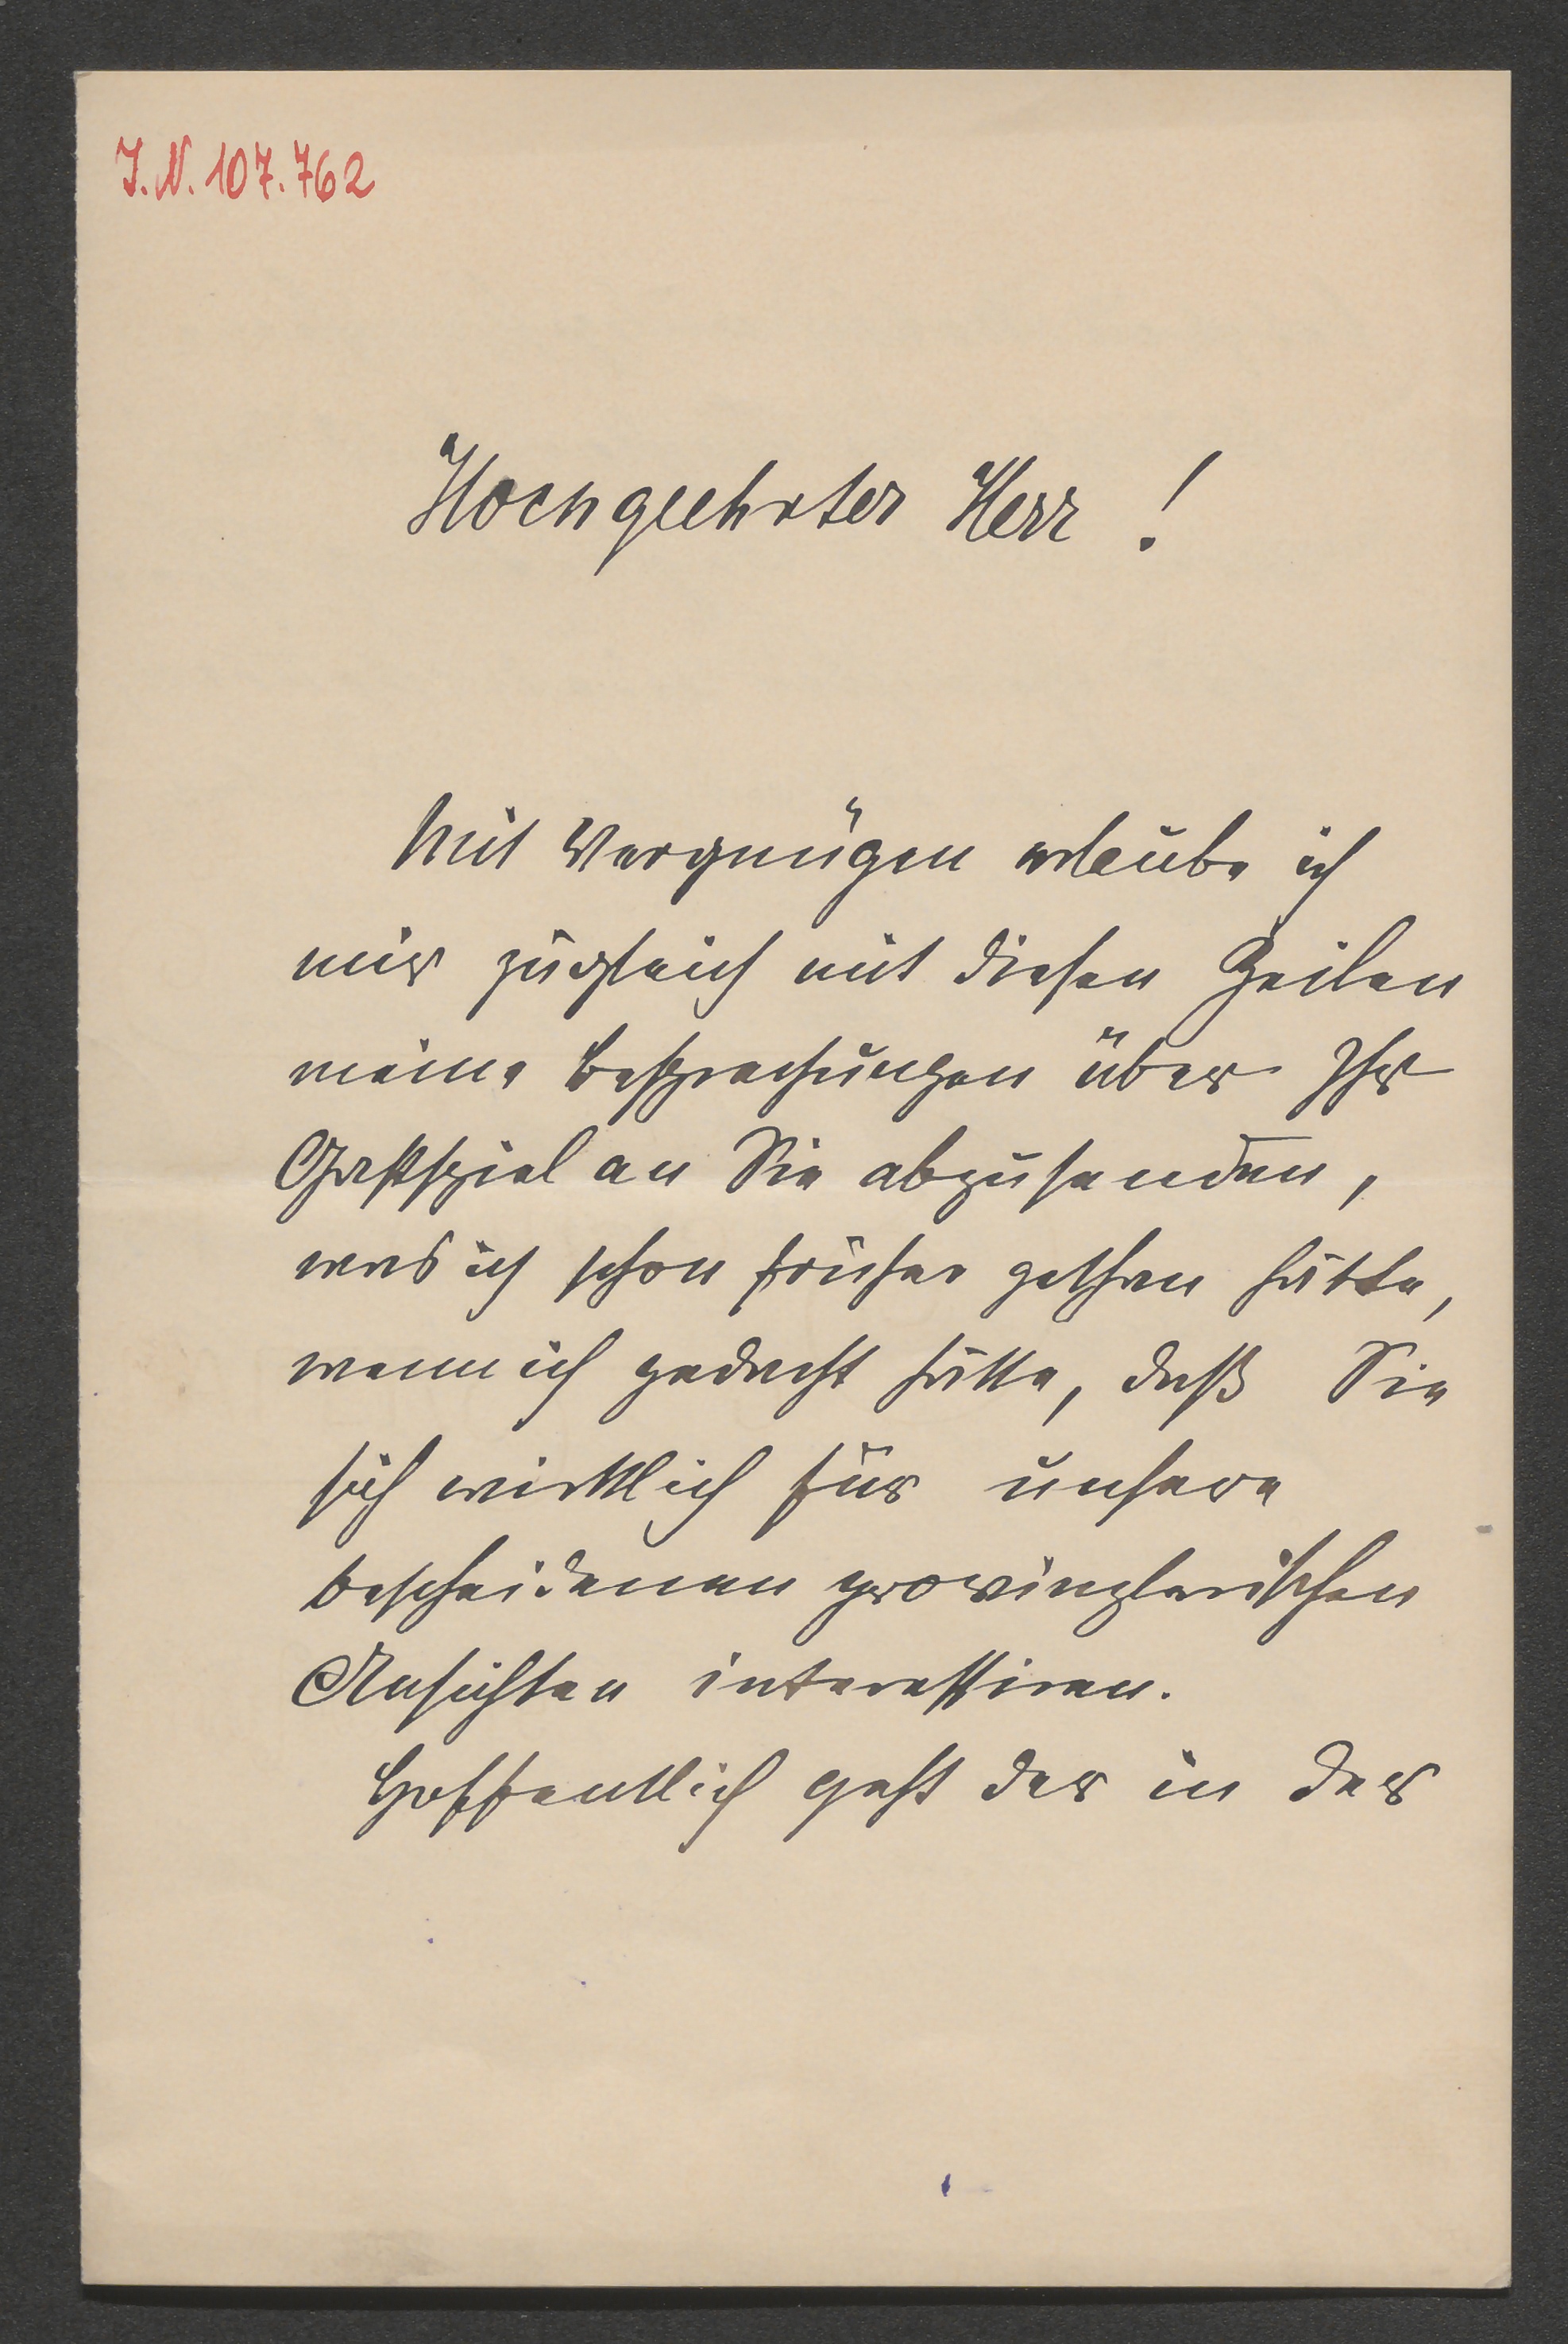 J.N. 107.762
Hochgeehrter Herr !
Mit Vergnügen erlaube ich
mir zugleich mit diesen Zeilen
meine Besprechungen über Ihr
Gastspiel an Sie abzusenden,
was ich schon früher gethan hätte,
wenn ich gedacht hätte, daß Sie
sich wirklich für unsere
bescheidenen provinzlerischen
Ansichten interessiren.
Hoffentlich geht der in der